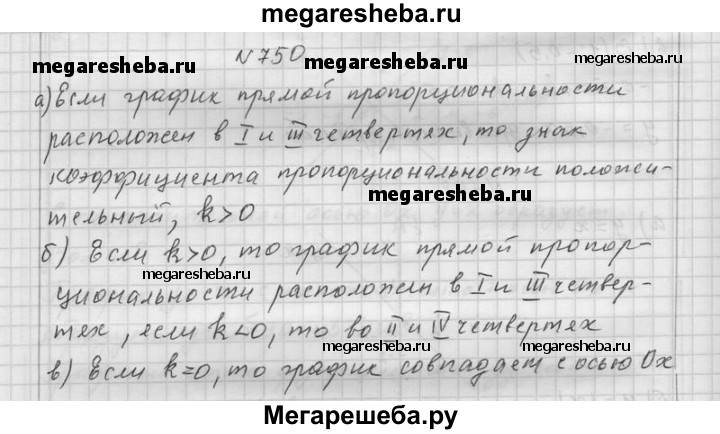 megaresheba.ru
N 750
megaresheba.ru megaresheba.ru
а) Если график прямой пропорциональности
расположен в I и III четвертях, то знак
коэффициента пропорциональности положи-
megaresheba.ru
тельный, k>0
б) Если k>0, то график прямой пропор-
megaresheba.ru megaresheba.ru
циональности расположен в I и III четвер-
тях, если k<0, то во II и IV четвертях
megaresheba.ru megaresheba.ru
в) Если k=0, то график совпадает с осью Ox
Мегарешеба.ру